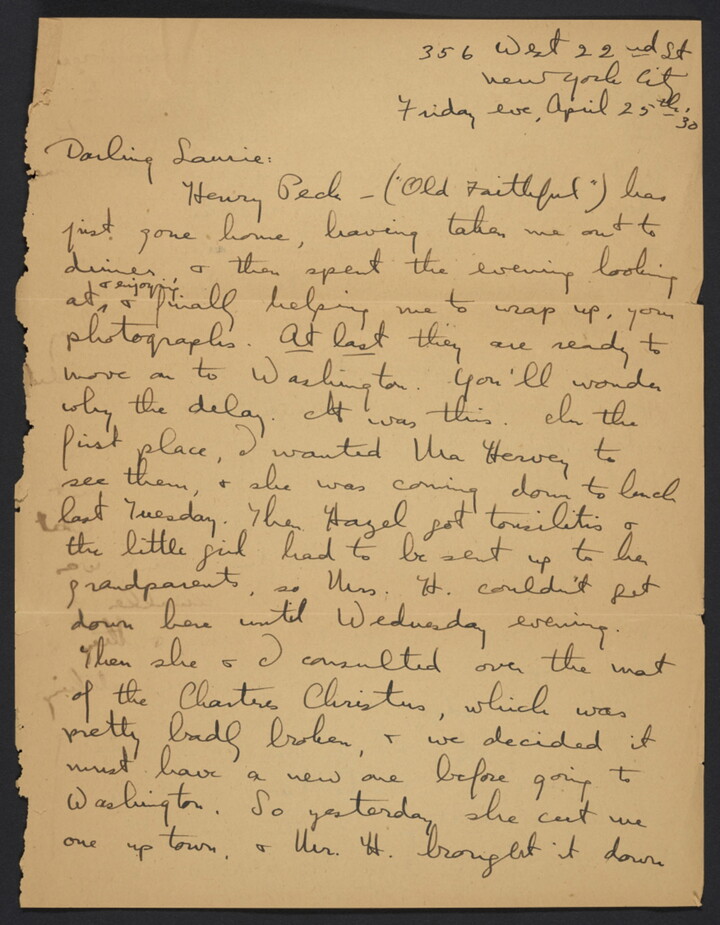 356 West 22nd St
New York City
Friday eve, April 25th, 30
Darling Laurie:
Henry Peck - ("Old Faithful") has
just gone home, having taken me out to
dinner, & then spent the evening looking
& enjoying
at, & finally helping me to wrap up, your
photographs. At last they are ready to
move on to Washington. You'll wonder
why the delay. It was this. In the
first place, I wanted Ma Hervey to
see them, & she was coming down to lunch
last Tuesday. Then Hazel got tonsilitis &
the little girl had to be sent up to her
grandparents, so Mrs. H. couldn't get
down here until Wednesday evening.
Then she & I consulted over the mat
of the Chartres Christus, which was
pretty badly broken, & we decided it
must have a new one before going to
Washington. So yesterday she cut me
one up town, & Mr. H. brought it down